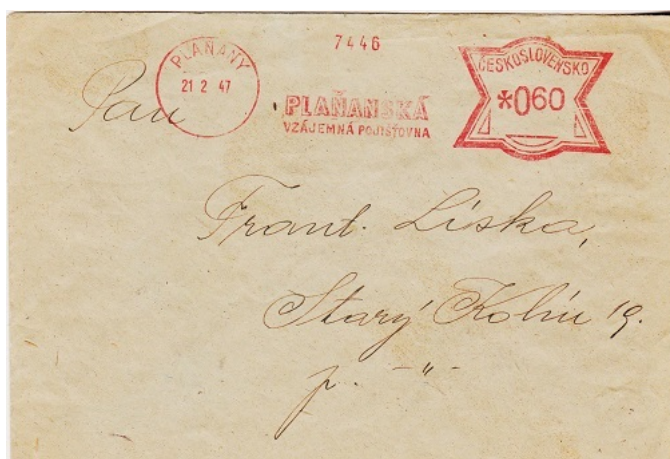 7446
PLAŇANY
21 2 47
PLAŇANSKÁ
VZÁJEMNÁ POJIŠŤOVNA
ČESKOSLOVENSKO
*060
Pan
Frant. Liska,
Starý Kolín 19.
p. -"-